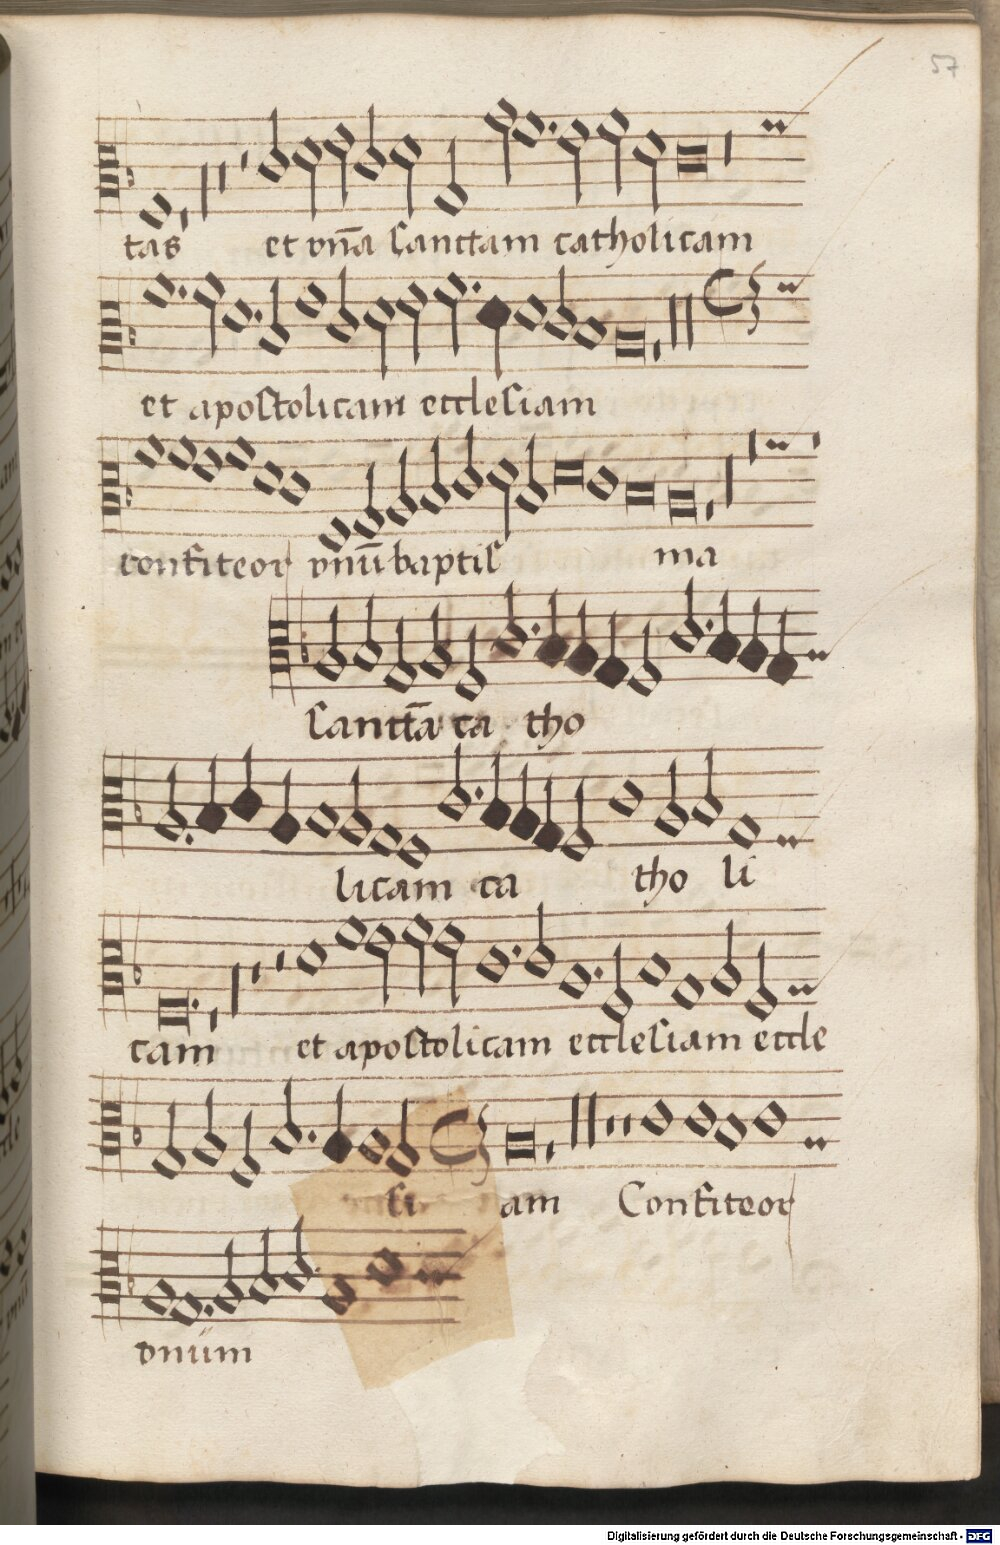 57
tas et vnā sanctam catholicam
et apostolicam ecclesiam
confiteor vnū baptis ma
sanctā ca tho
licam ca tho li
cam et apostolicam ecclesiam eccle
si am Confiteor
vnum
Digitalisierung gefördert durch die Deutsche Forschungsgemeinschaft - DFG